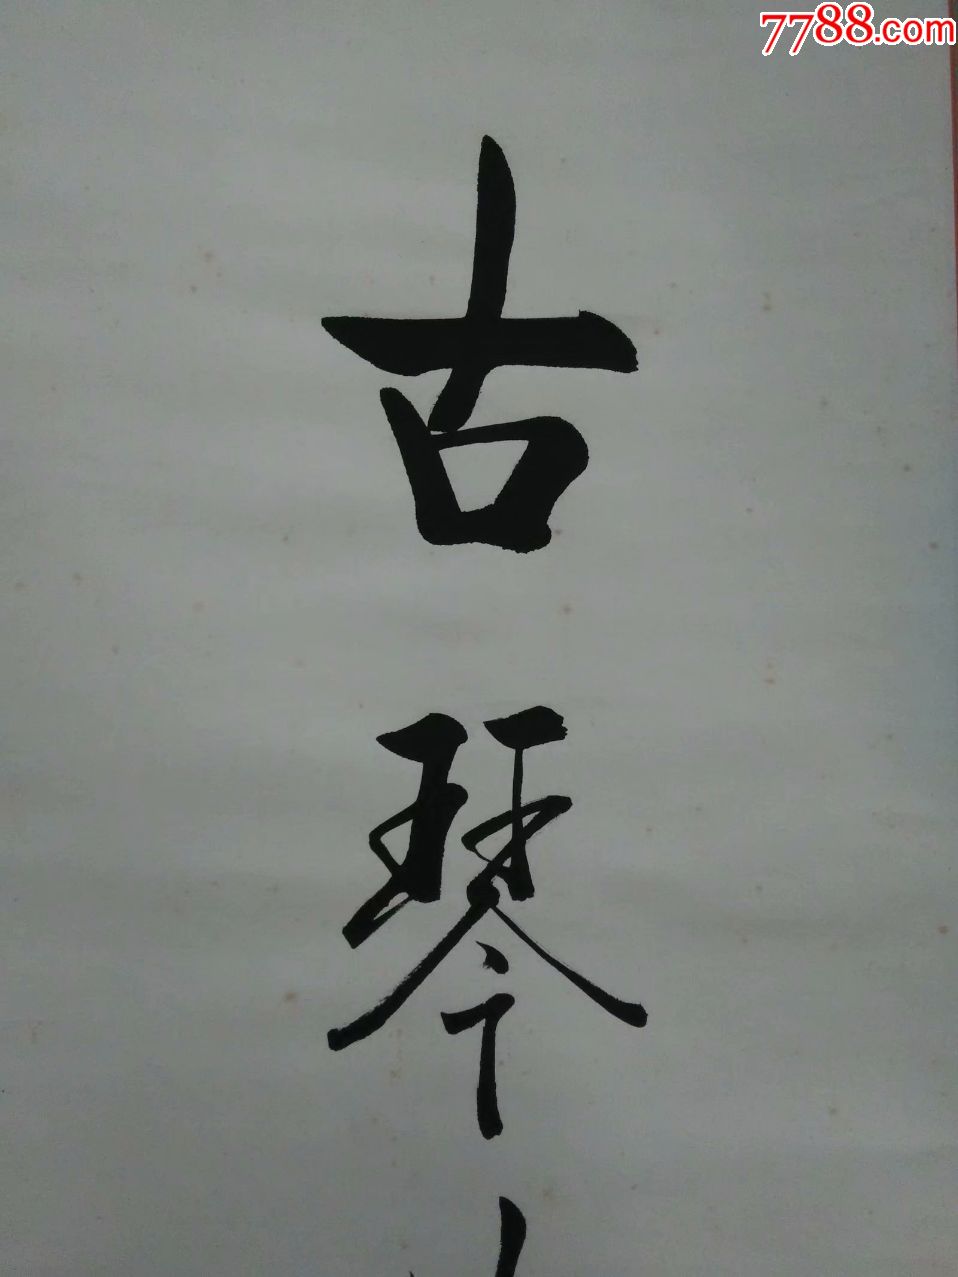 7788.com
古琴